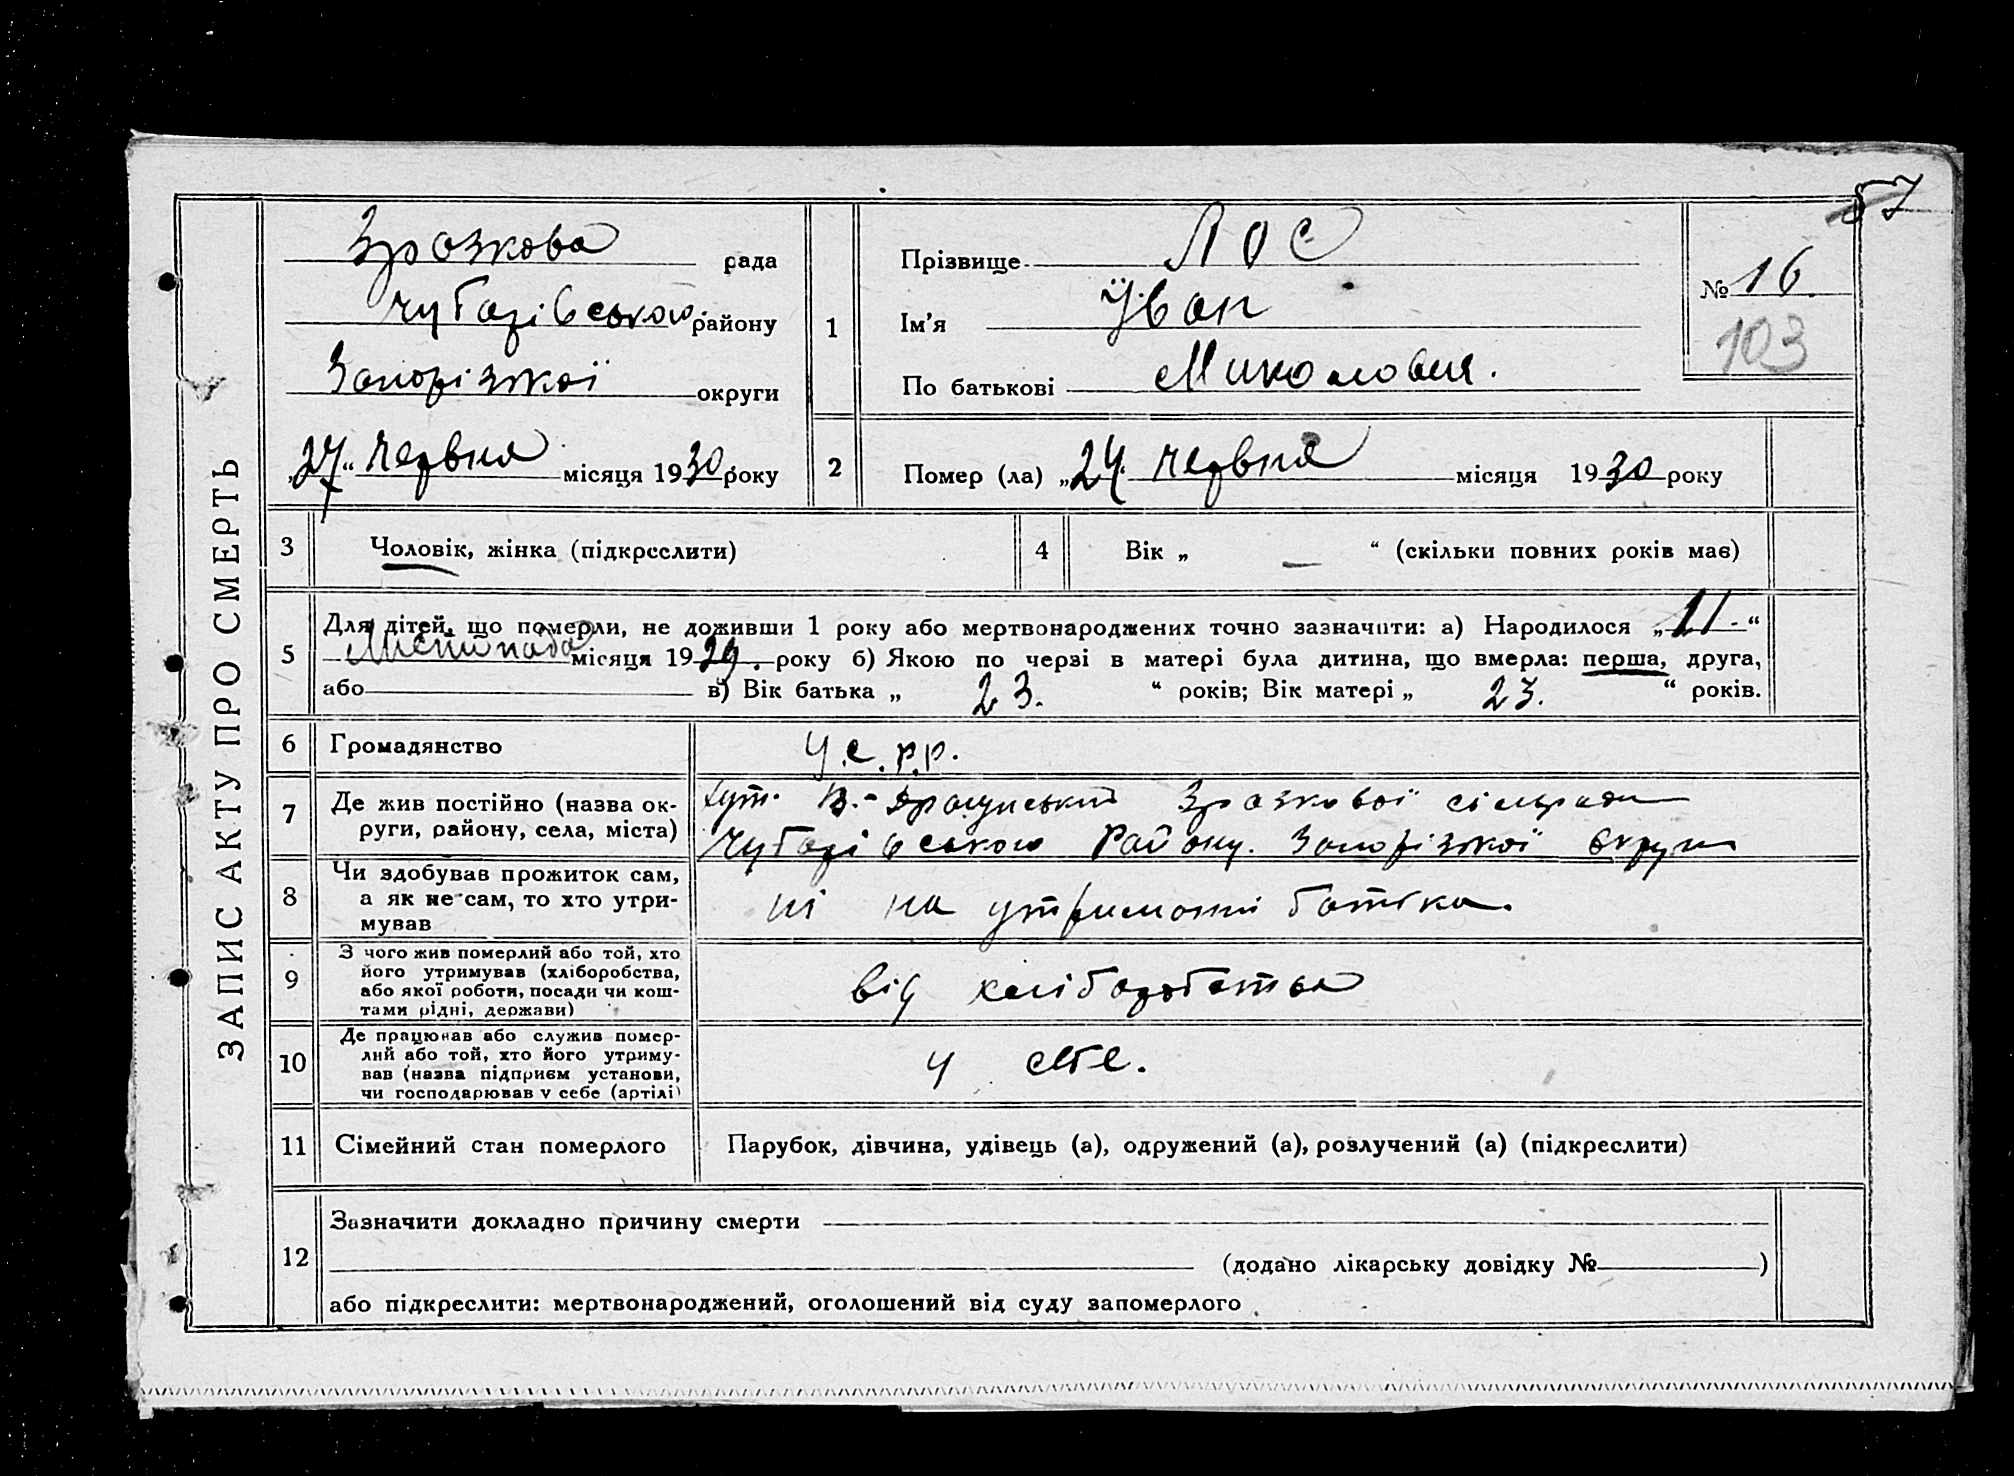 57
ЗАПИС АКТУ ПРО СМЕРТЬ
Зразкова рада
Чубарівського району
Запоріжкої округи
„27“ червня місяця 1930 року
1
Прізвище Лос
Ім’я Іван
По батькові Миколовия.
№ 16.
103
2
Помер (ла) „24. червня місяця 1930 року
3
Чоловік, жінка (підкреслити)
4
Вік „ — “ (скільки повних років має)
5
Для дітей, що померли, не доживши 1 року або мертвонароджених точно зазначити: а) Народилося „11.“
Листопада місяця 1929. року б) Якою по черзі в матері була дитина, що вмерла: перша, друга,
або в) Вік батька „ 23. “ років; Вік матері „ 23. “ років.
6
Громадянство
У.С.Р.Р.
7
Де жив постійно (назва ок-
руги, району, села, міста)
хут. Зразкової сільради
Чубарівського Району. Запоріжкої округи
8
Чи здобував прожиток сам,
а як не сам, то хто утри-
мував
ні на утриманні батька.
9
З чого жив померлий або той, хто
його утримував (хліборобства,
або якої роботи, посади чи кош-
тами рідні, держави)
від хліборобства
10
Де працював або служив помер-
лий або той, хто його утриму-
вав (назва підприєм установи,
чи господарював у себе (артілі)
у себе.
11
Сімейний стан померлого
Парубок, дівчина, удівець (а), одружений (а), розлучений (а) (підкреслити)
12
Зазначити докладно причину смерти
(додано лікарську довідку № )
або підкреслити: мертвонароджений, оголошений від суду запомерлого